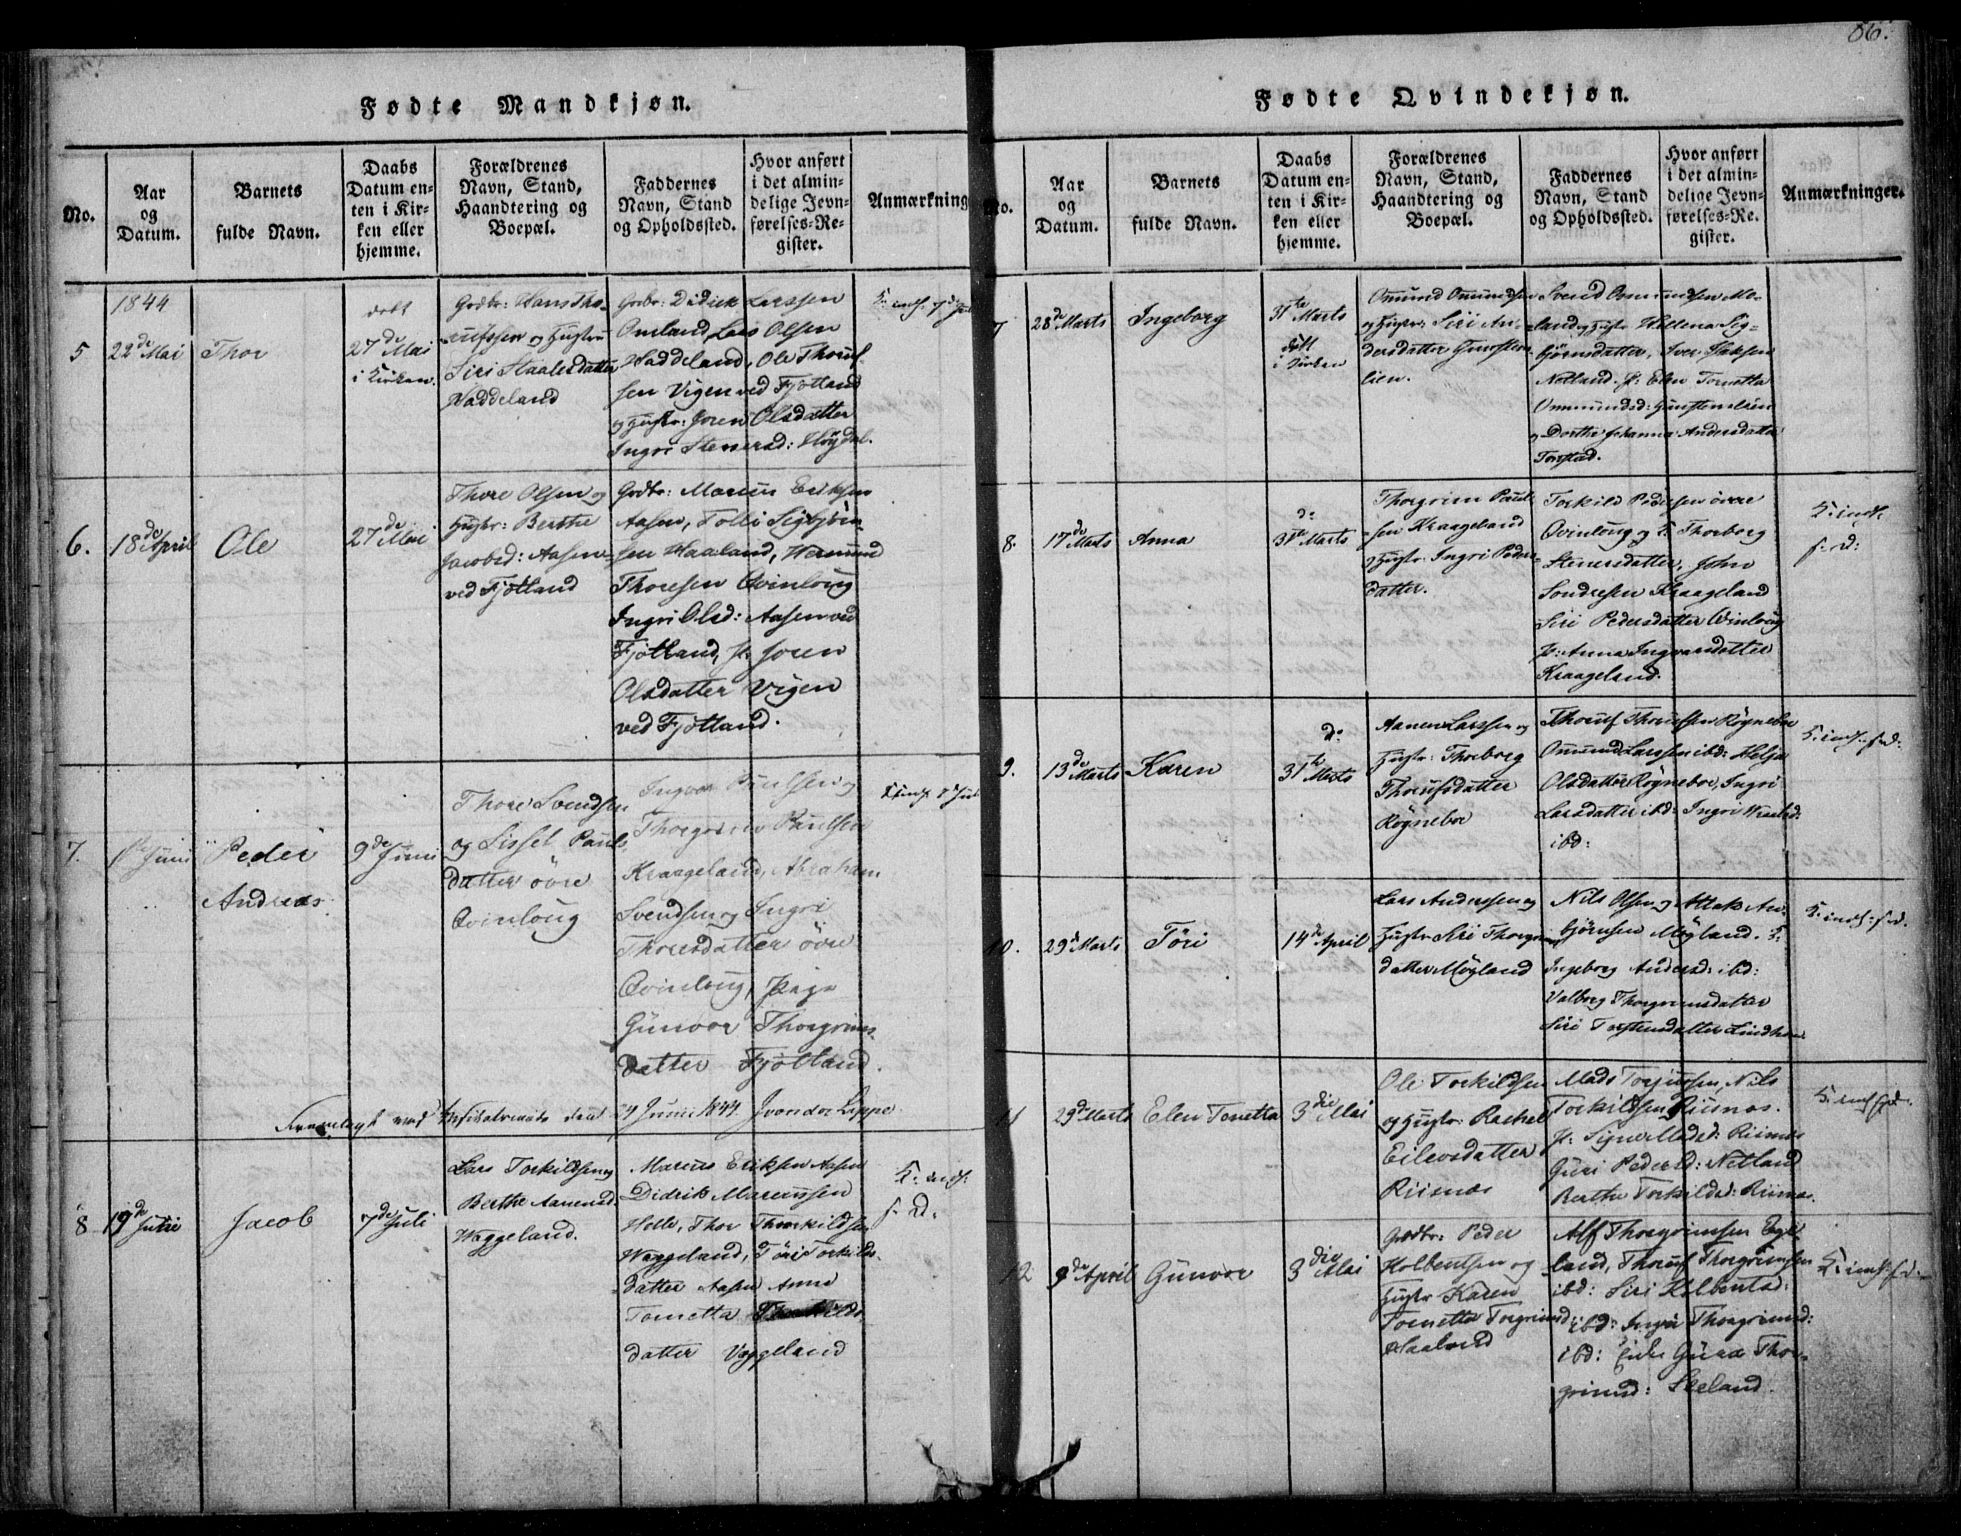 86.
Fødte Mandkjøn.
No.
Aar
og
Datum.
Barnets
fulde Navn.
Daabs
Datum en-
ten i Kir-
ken eller
hjemme.
Forældrenes
Navn, Stand,
Haandtering og
Boepæl.
Faddernes
Navn, Stand
og Opholdssted.
Hvor anført
i det almin-
delige Jevn-
førelses-Re-
gister.
Anmærkning
1844
5
22de Mai
Thor
døbt
27de Mai
i Kirken.
Gdbr: Hans Tho-
rufssen og Hustru
Siri Staalesdatter
Haddeland
Gdbr: Didrik Larssen
Omland, Lars Olsen
Haddeland, Ole Thoruf-
sen Vigen ved Fjotland
og Hustr: Joren Olsdatter
Ingri Stenersd:
6.
18de April
Ole
27de Mai
Thore Olsen og
Hustr: Berthe
Jacobsd: Aasen
ved Fjotland
Gdbr: Marcus Eriksen
Aasen, Tolli Sigbjørn-
sen Haaland, Hermund
Thoresen Qvinloug
Ingri Olsd: Aasen ved
Fjotland, P: Joren
Olsdatter Vigen
ved Fjotland.
7.
Juni
Peder
Andreas
9de Juni
Thore Svendsen
og Sisset Pauls-
datter øvre
Qvinloug
Ingvar Paulsen og
Thorgrim Paulsen
Kraageland, Abraham
Svendsen og Ingri
Thoresdatter øvre
Qvinloug, Pige
Gunvor Thorgrims-
datter Fjotland.
Fremlagt ved
Juni 1844. Jvon der Lippe
8
19de Juni
Jacob
7de Juli
Lars Torkildsen og
Berthe Aanensd.
Waggeland.
Marcus Eriksen Aasen
Didrik Marcussen
Helle, Thor Thorkildsen
Waggeland, Tøri Torkilds-
datter Aasen Anne
Tonetta
datter Vaggeland
K: inds:
f. d:
Fødte Qvindekjøn.
No.
Aar
og
Datum.
Barnets
fulde Navn.
Daabs
Datum en-
ten i Kir-
ken eller
hjemme.
Forældrenes
Navn, Stand,
Haandtering og
Boepæl.
Faddernes
Navn, Stand
og Opholdssted.
Hvor anført
i det almin-
delige Jevn-
førelses-Re-
gister.
Anmærkninger.
7
28de Marts
Ingeborg
31te Marts
døbt
i Kirken
Omund Omundsen
og Hustr: Siri An-
dersdatter Gunsten-
lien.
Svend Omundsen Mo-
land og Hustr Hellena Sig-
bjørnsdatter, Iver Isaksen
Netland. P: Elen Tonetta
Ommundsd: Gunstenlien
og Dorthe Johanna Andersdatter
8.
17de Marts
Anna
d:
31te Marts
Thorgrim Paul-
sen Kraageland
og Hustr: Ingri Peders-
datter.
Torkild Pedersen øvre
Qvinloug og K. Thorborg
Stenersdatter, John
Sondresen Kraageland
Siri Pedersdatter Qvinloug
P: Anna Ingvarsdatter
Kraageland.
K: inds:
f. d:
9.
13de Marts
Karen
d:
31te Marts
Aanen Larssen og
Hustr: Thorborg
Thorufsdatter
Røgnebor
Thoruf Thorufssen Røgnebor
Omund Larssen ibd:
Olsdatter Røgnebor, Ingri
Larsdatter ibd: Ingri
ibd:
K: inds: f. d:
10.
29de Marts
Tøri
14de April
Lars Anderssen og
Hustr Siri Thorgrims-
datter Møgland
Nils Olsen og Atlak An-
bjørnsen Møgland. K:
Ingeborg Andersd: ibd:
Valborg Thorgrimsdatter
Siri Torstensdatter
K: inds: f. d.
11
29de Marts
Elen Tonetta
3die Mai
Ole Torkildsen
og Hustr: Rachel
Eilevsdatter
Risnes
Mads Torjussen, Nils
Torkildsen Risnes.
P: Signe Madsd: Risnes
Guri Pedersd: Netland
Berthe Torkildsd: Risnes.
K: inds f. d.
12
9de April
Gunvor
3die Mai
Gdbr: Peder
Kolbentsen og
Hustr Karen
Tonetta Torgrimsd:
Alf Thorgrimsen
land, Thoruf Thorgrimsen
ibd: Siri Kolbentsd:
ibd: Ingri Thorgrimsd:
ibd: Enke Guro Thor-
grimsd:
K: inds: f. d.